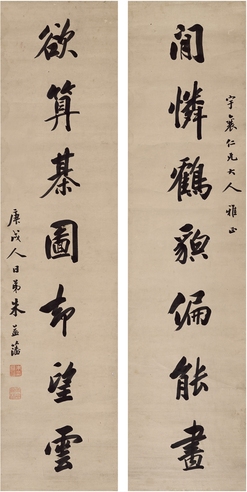 宇襄仁兄大人雅正
閒憐鶴貌偏能畫
欲算棊圖却望雲
庚戌人日弟朱益藩